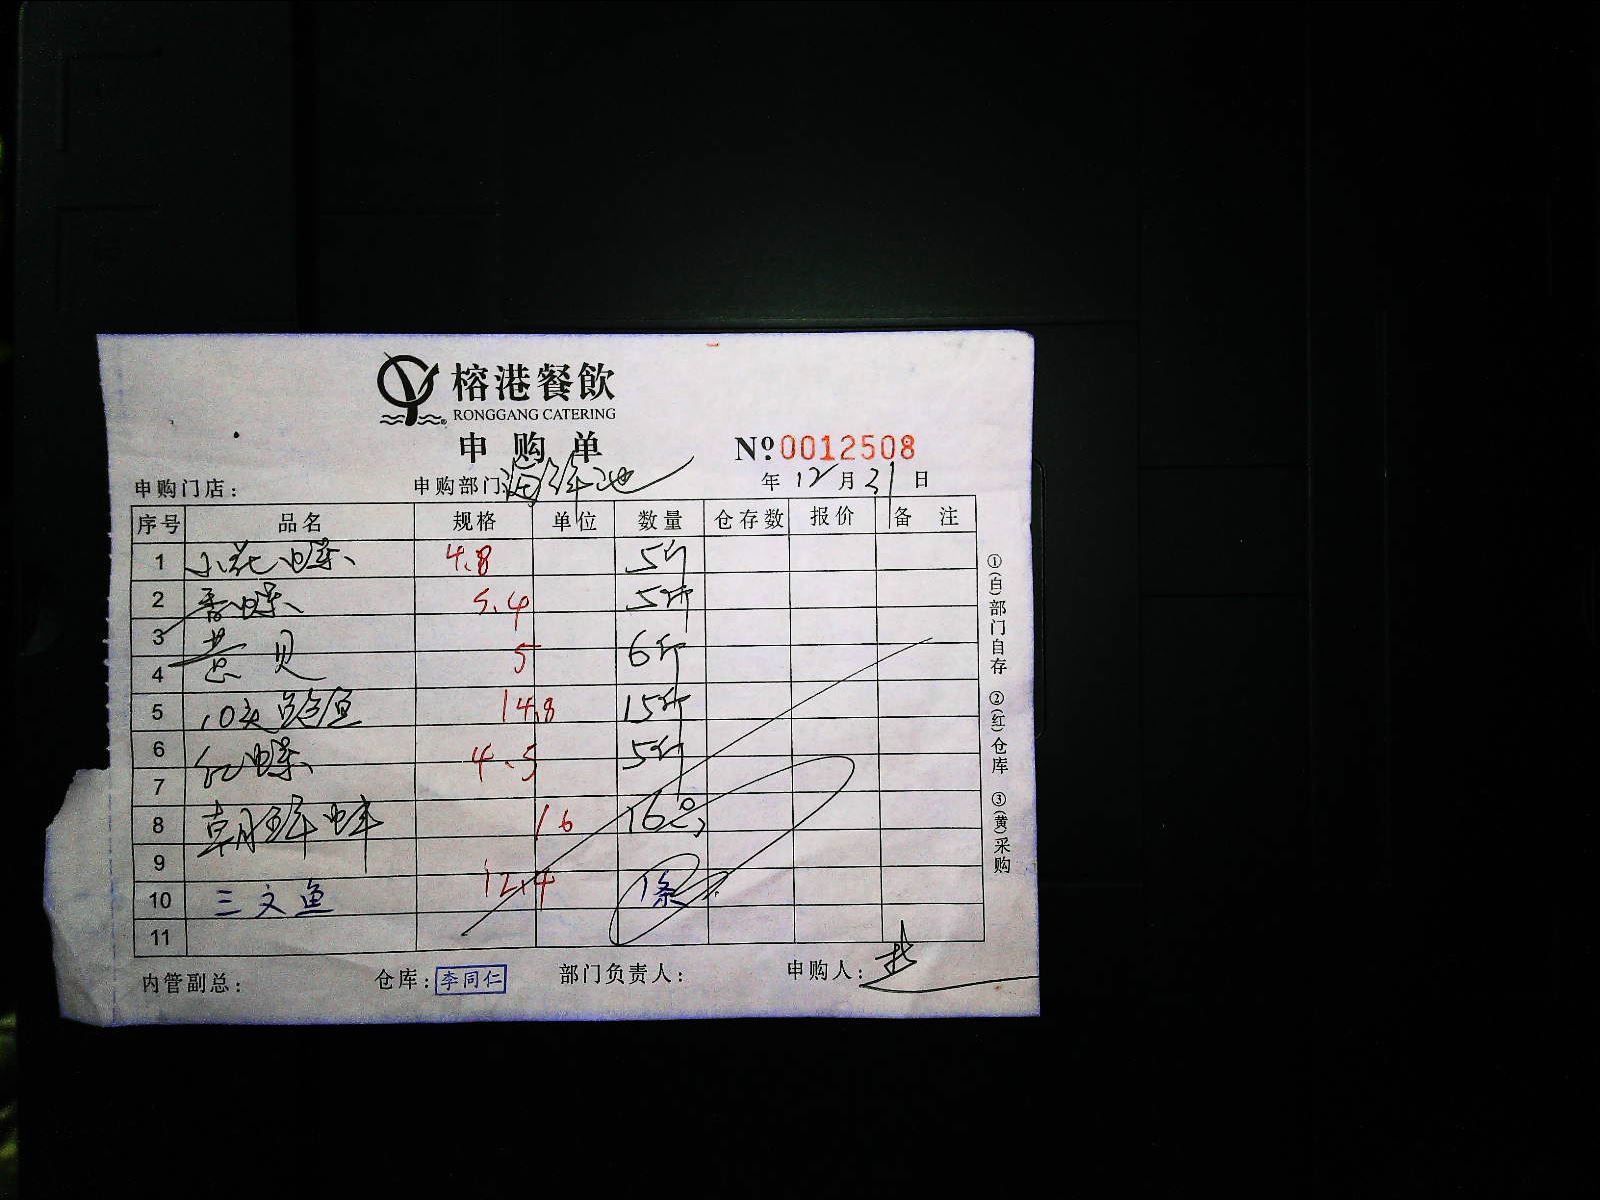 榕港餐飲
RONGGANG CATERING
申购单 №0012508
申购门店： 申购部门：海鲜池 年 12 月 31 日
序号 品名 规格 单位 数量 仓存数 报价 备注
1 小花螺 4.8 5斤
2 香螺 5.4 5斤
3
黄贝 5 6斤
4
5 10头鲍鱼 14.8 15斤
6 红螺 4.5 5斤
7
8 朝鲜蚌 16 16只
9
10 三文鱼 12.4 1条
11
内管副总： 仓库：李同仁 部门负责人： 申购人：
①(白)部门自存 ②(红)仓库 ③(黄)采购